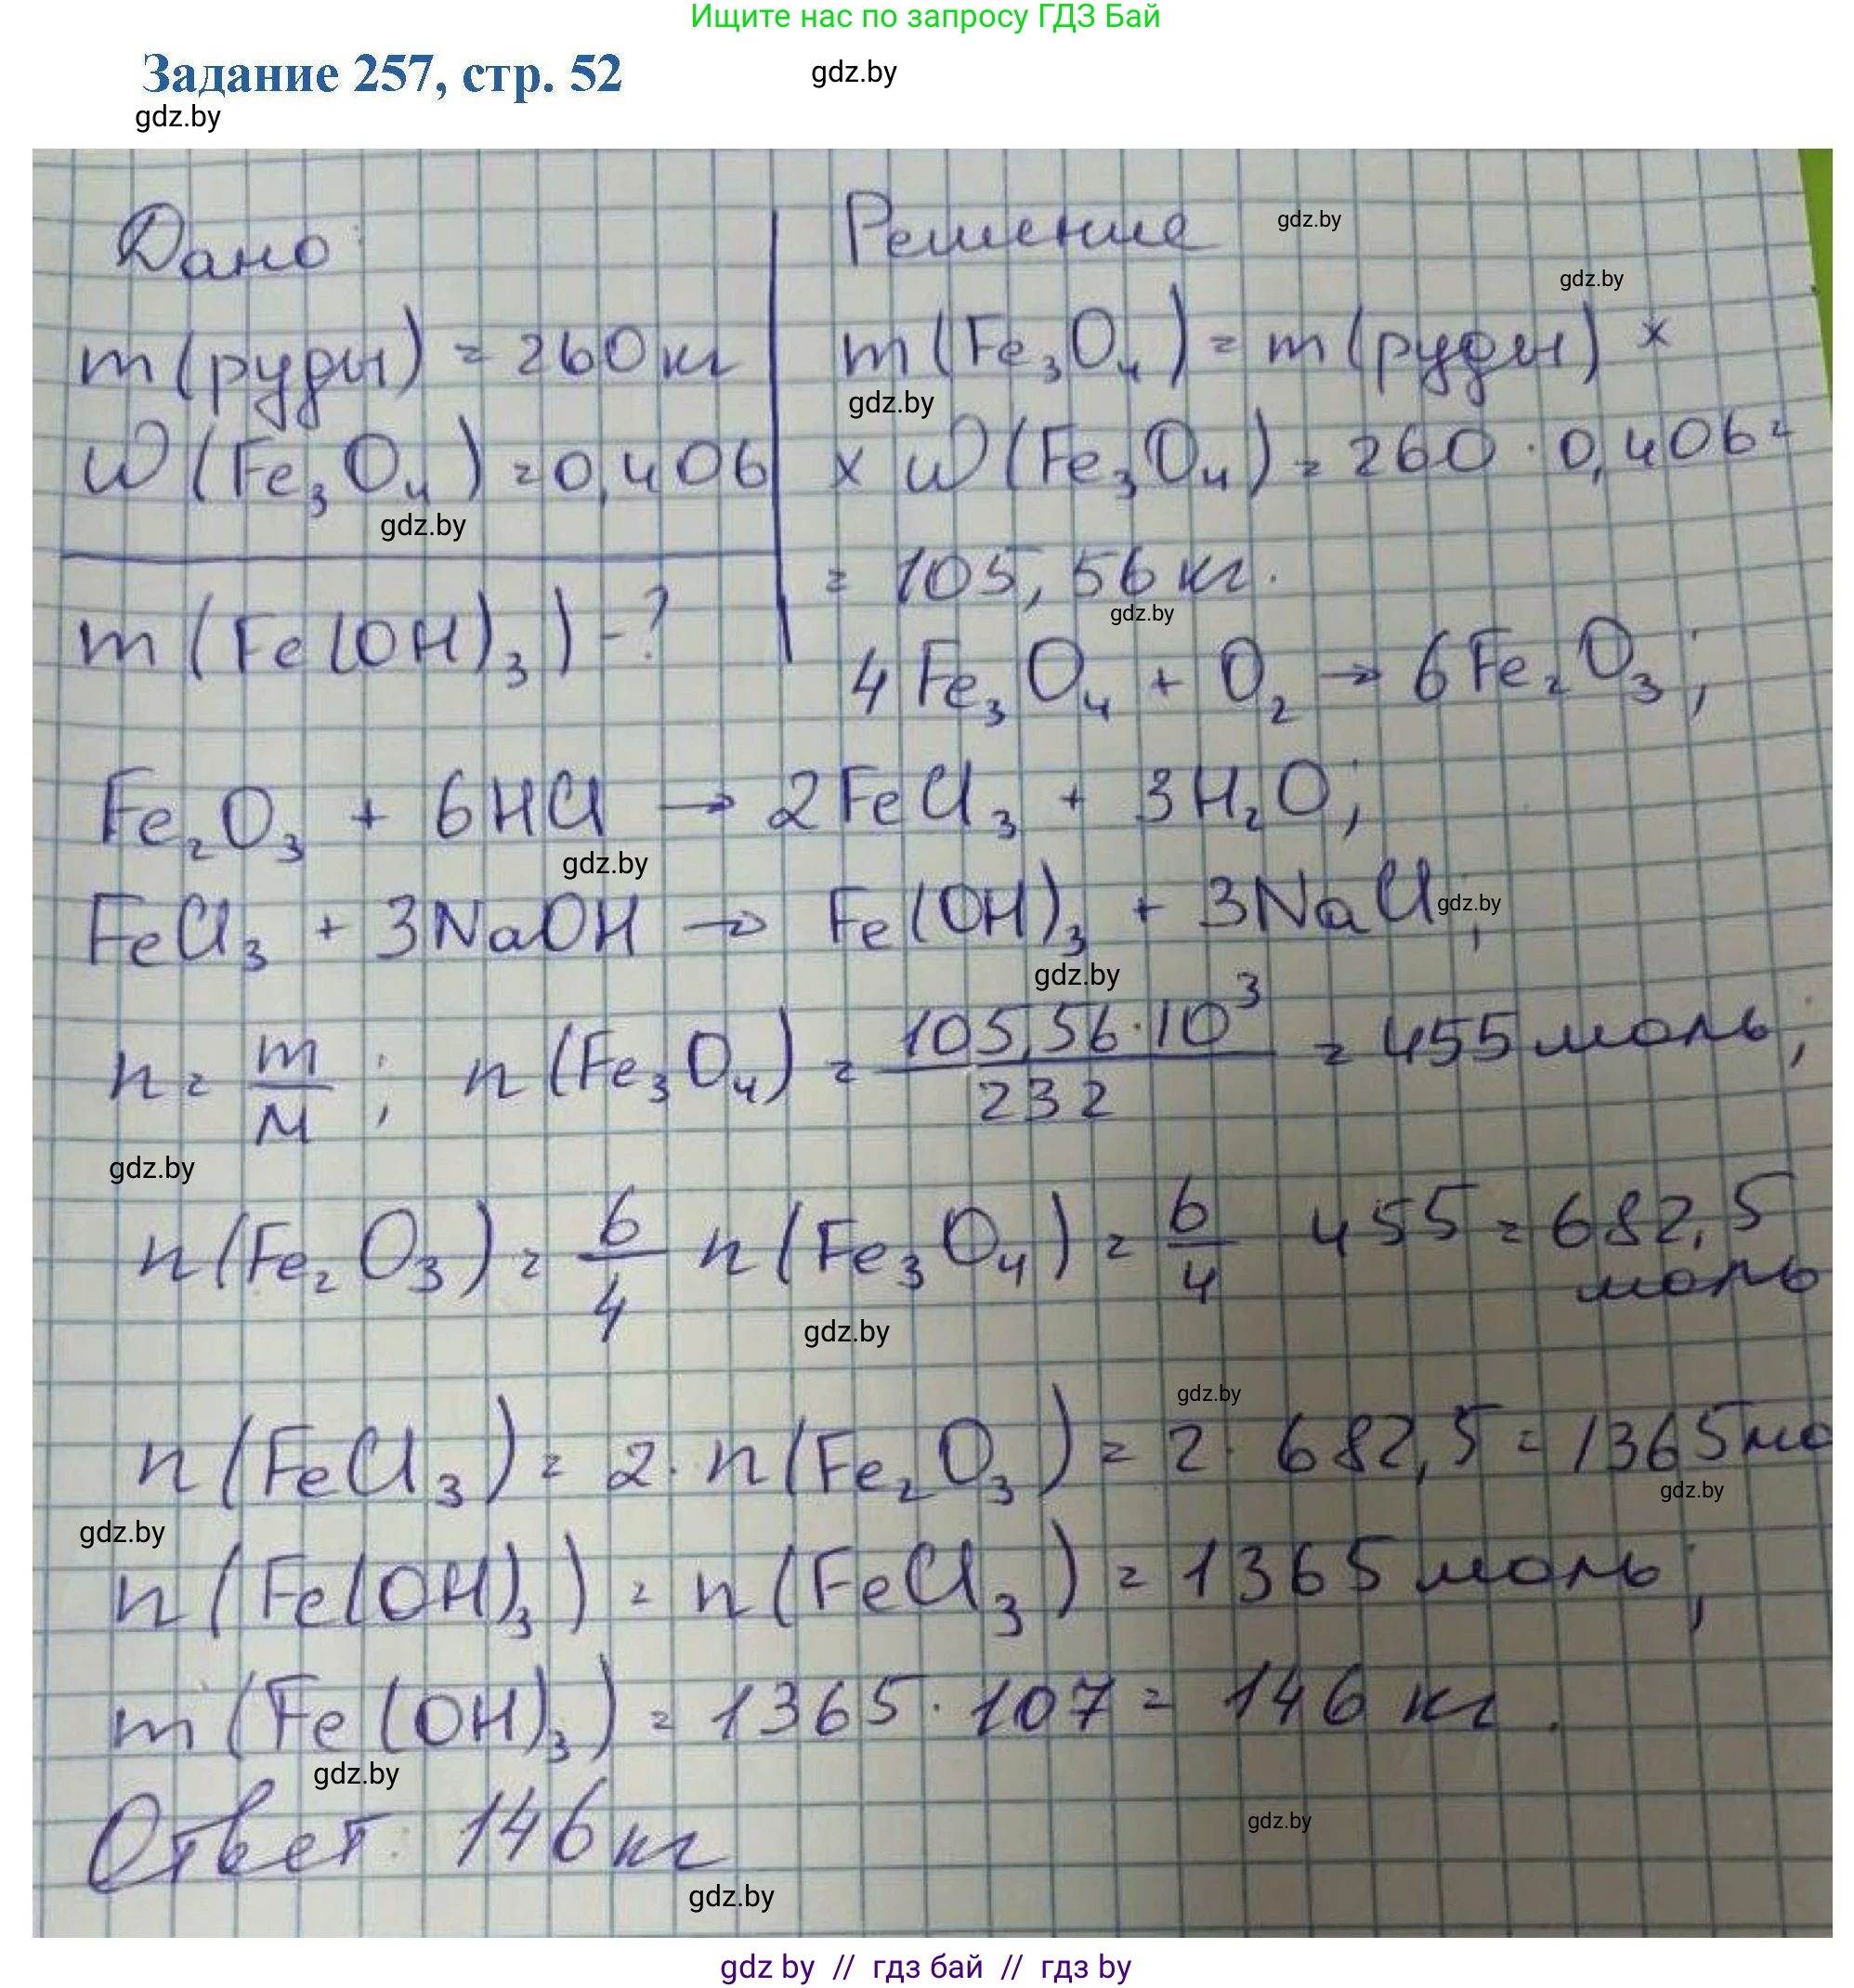 Ищите нас по запросу ГДЗ Бай
Задание 257, стр. 52
gdz.by
gdz.by
Дано:
Решение
gdz.by
gdz.by
m(руды) = 260 кг
m(Fe₃O₄) = m(руды) ×
gdz.by
W(Fe₃O₄) = 0,406
× W(Fe₃O₄) = 260 · 0,406 =
gdz.by
= 105,56 кг.
gdz.by
m(Fe(OH)₃) - ?
4Fe₃O₄ + O₂ → 6Fe₂O₃;
Fe₂O₃ + 6HCl → 2FeCl₃ + 3H₂O;
gdz.by
FeCl₃ + 3NaOH → Fe(OH)₃ + 3NaCl;
gdz.by
gdz.by
n = m/M; n(Fe₃O₄) = 105,56·10³/232 = 455 моль;
gdz.by
n(Fe₂O₃) = 6/4 n(Fe₃O₄) = 6/4 455 = 682,5
моль
gdz.by
gdz.by
n(FeCl₃) = 2 · n(Fe₂O₃) = 2 · 682,5 = 1365 мо
gdz.by
gdz.by
n(Fe(OH)₃) = n(FeCl₃) = 1365 моль;
m(Fe(OH)₃) = 1365 · 107 = 146 кг.
gdz.by
Ответ: 146 кг
gdz.by
gdz.by
gdz by // гдз бай // гдз by